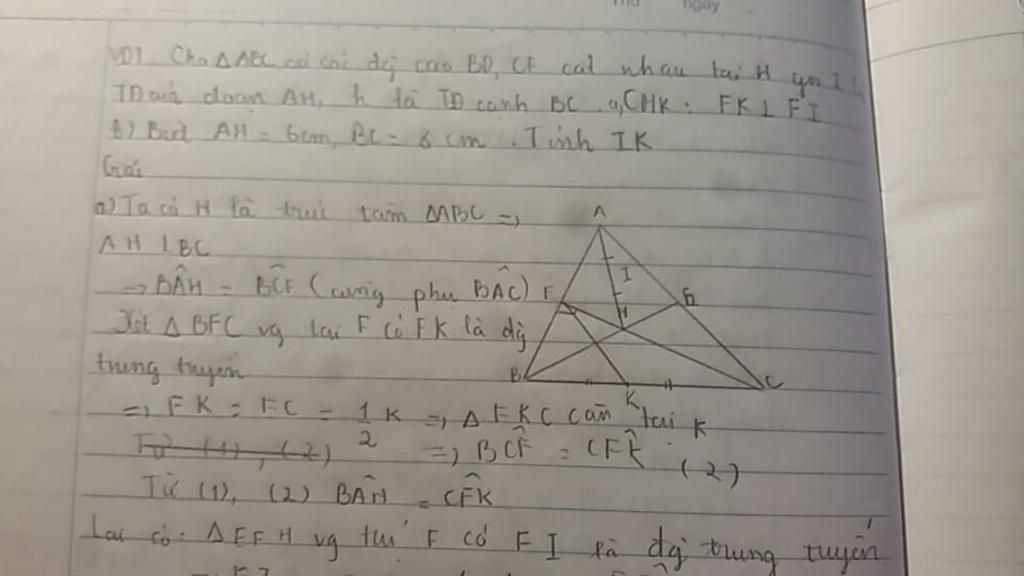 Thứ ngày
VD1 Cho ΔABC có các dg cao BD, CF cắt nhau tại H gọi I
TĐ của đoạn AH, K là TĐ cạnh BC a, CMR: FK ⊥ FI
b) Biết AH = 6cm, BC = 8 cm. Tính IK
Giải
a) Ta có H là trực tâm ΔABC =>
AH ⊥ BC
=> BÂH = BĈF (cùng phụ BÂC)
Xét ΔBFC vg tại F có FK là dg
trung tuyến
=> FK = EC = 1/2 K => ΔFKC cân tại K
Từ (1), (2) => BĈF = CF̂K (2)
Từ (1), (2) BÂH = CF̂K
Lại có: ΔEFH vg tại F có FI là dg trung tuyến
A
I
F
H
B
K
C